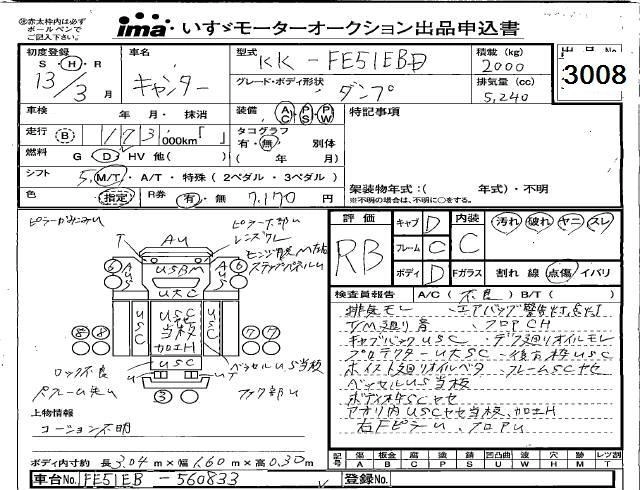 ㊟赤太枠内は必ず
ボールペンで
ご記入下さい。
ima いすゞモーターオークション出品申込書
初度登録 車名 型式 積載 (kg) 出品No
S・H・R キャンター KK-FE51EBD 2000 3008
13/3月 グレード・ボディ形状 ダンプ 排気量 (cc) 5,240
車検 年 月・ 抹消 装備 AC PS PW 特記事項
走行 B 173,000km「 」 タコグラフ
有・無 別体
燃料 G D HV 他( ) ( 年 月)
シフト 5 M/T・A/T・特殊 (2ペダル・3ペダル)
色 指定 R券 有・無 7,170 円
架装物年式:( 年式)・不明
※不明の場合は、不明に○をする。
ピラーガバミU
ピラー下部U
レンズワレ
ステップパネルU
T AU
6 AUS USBM AUS 6
USC
USC USC 当板 加工H USC
8 8 7 7
USC
ロック不良
ベッセルUS当板
U T
3
上物情報
コーション不明
評価 RB キャブ D 内装 C 汚れ・破れ・ヤニ・スレ
フレーム C
ボディ D Fガラス 割れ 線 点傷 イバリ
検査員報告 A/C ( 不良 ) B/T ( )
排気モレ エアバッグ警告灯点灯
T/M廻り音 フロアCH
キャブバックUSC デフ廻りオイルモレ
プロテクターUSC
ホイスト廻りオイルベタ フレームSCヤセ
ベッセルUS当板
ボディ SCヤセ
アオリ内USCヤセ当板、加工H
右FピラーU フロアU
記号 傷 板金 腐 塗 錆 凹凸曲 波 穴 跡 レツ割
A B C P S U W H M T
ボディ内寸約 長3.04m×幅1.60m×高0.30m
車台No. FE51EB-560833 登録No.